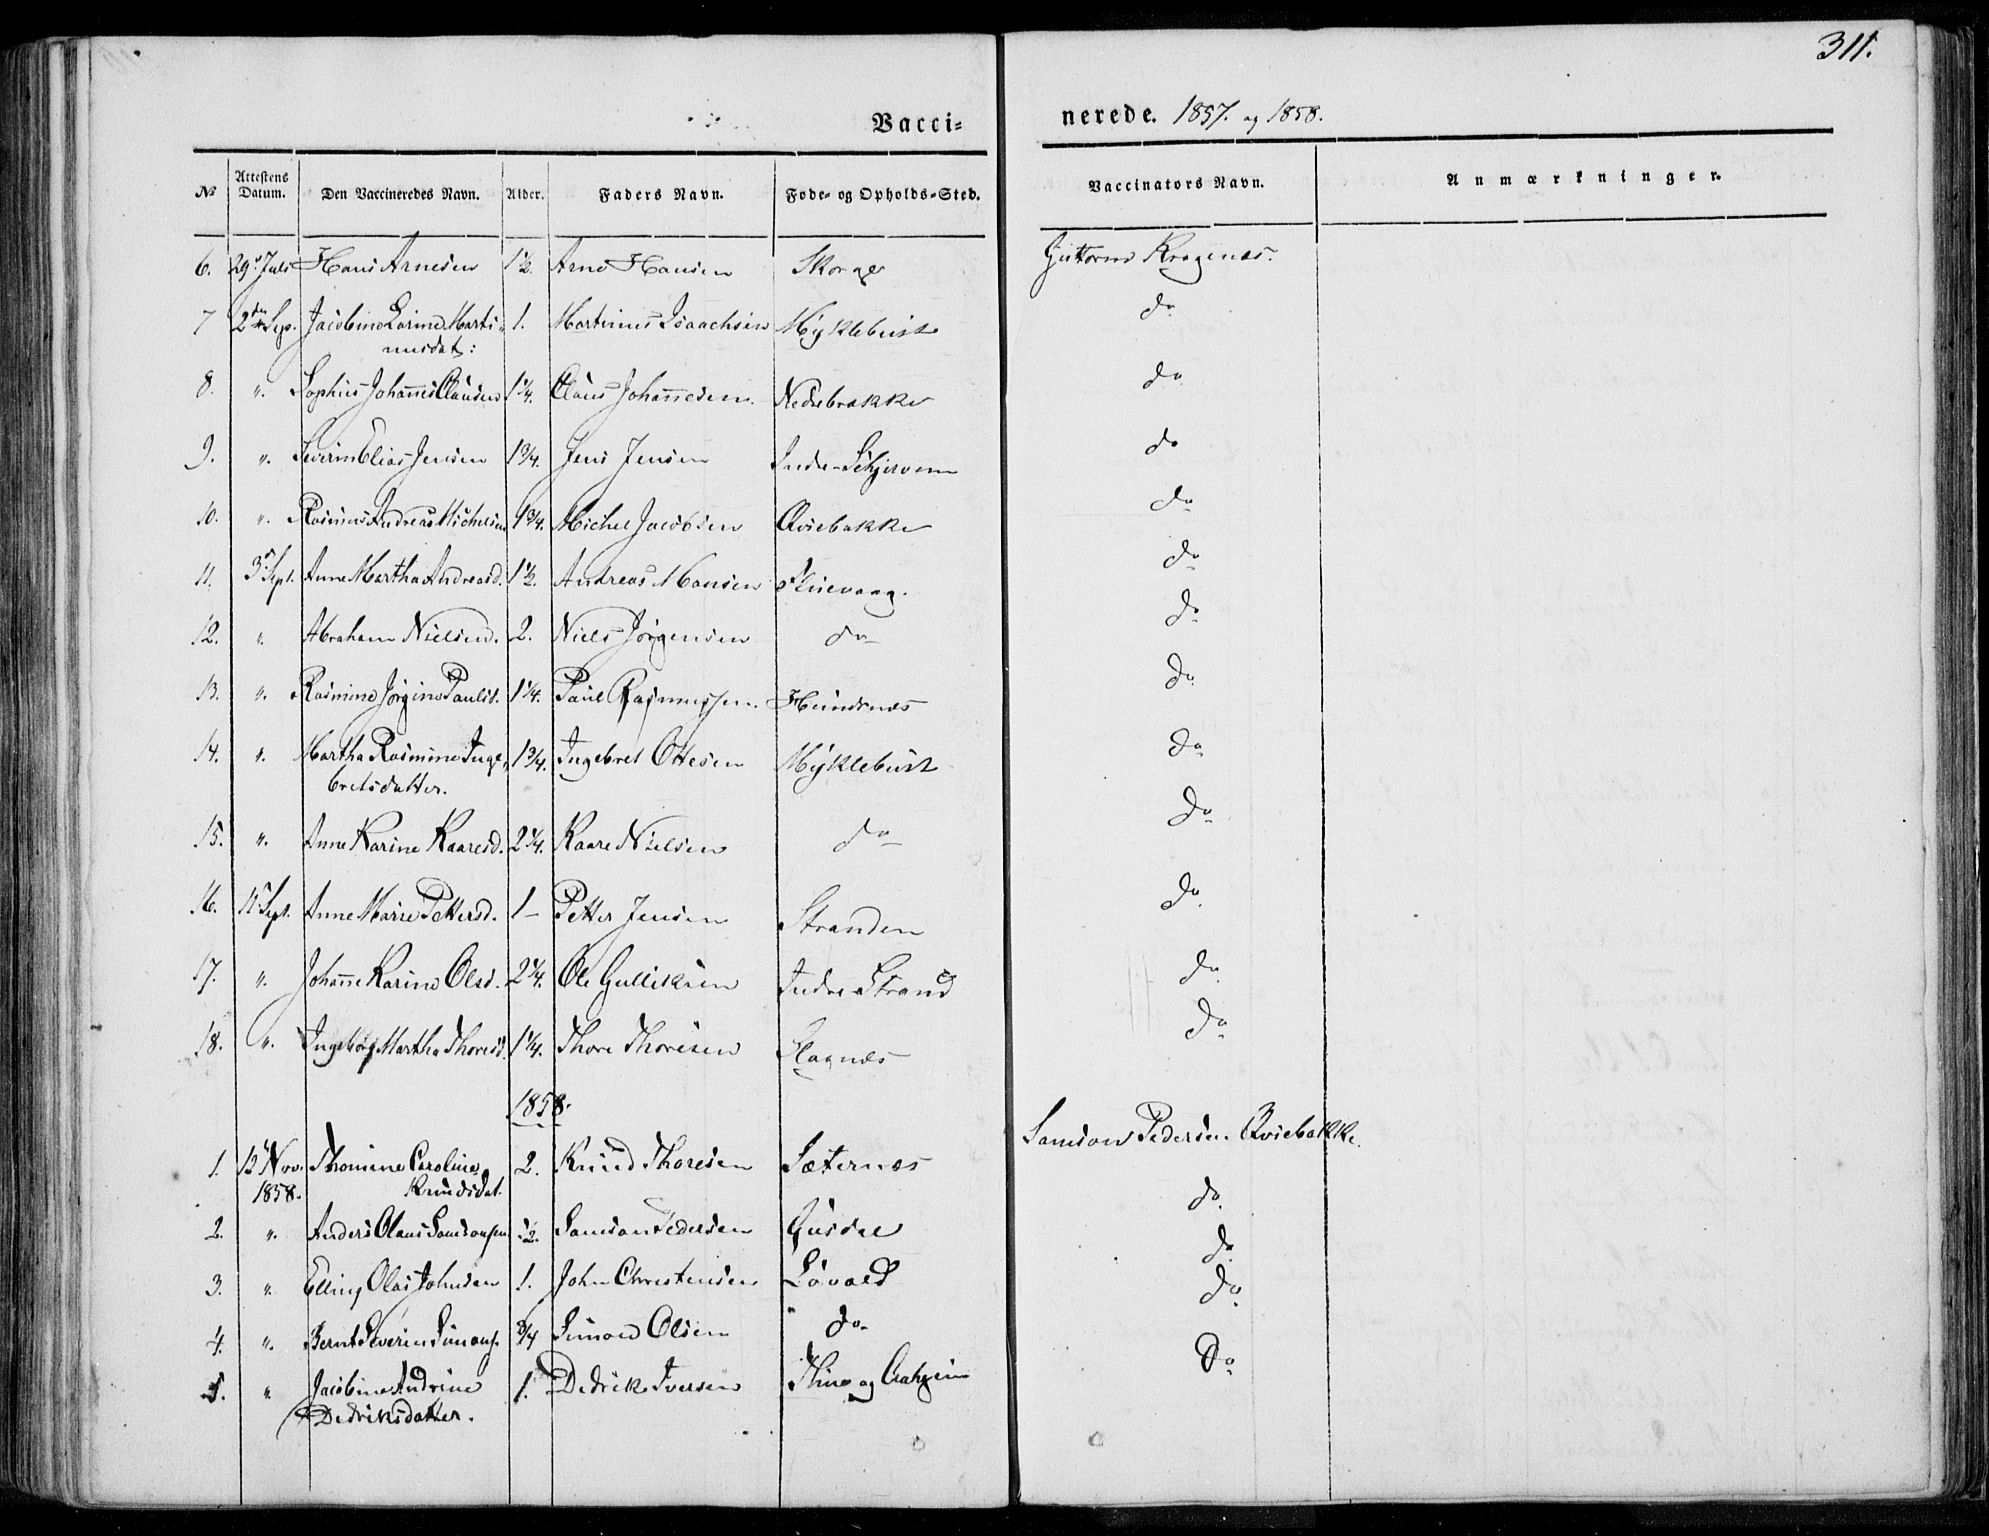 311.
Vacci-
nerede. 1857. og 1858.
No Attestens Datum. Den Vaccineredes Navn. Alder. Faders Navn. Føde- og Opholds-Sted. Vaccinators Navn. Anmærkninger.
6. 29 Juli Hans Arnesen 1½. Arne Hansen Skorge Guttorm Kragenæs.
7 2den Sep. Jacobine Larine Marti- 1. Martinus Isaachsen Myklebust do
nusdat:
8. ". Sophus Johannes Clausen 1¼. Claus Johannesen. Nedrebrække do
9. ". Severin Elias Jensen 1¾. Jens Jensen Indre- do
10. ". Rasmus Andreas Michelsen 1¾. Michel Jacobsen Qviebakke do
11. 3 Sept. Anne Martha Andreasd. 1½. Andreas Hansen do
12. " Abraham Nielsen. 2. Niels Jørgensen do do
13. ". Rasmine Jørgine Paulsd. 1¼. Paul Rasmussen. Hundsnæs do
14. ". Martha Rasmine Inge- 1¾. Ingebret Ottesen Myklebust do
bretsdatter.
15. ". Anne Karine Kaaresd. 2¼. Kaare Nielsen do do
16. 11 Sept. Anne Marie Pettersd. 1- Petter Jensen Stranden do
17. ". Johanne Karine Olsd. 2¼. Ole Gulliksen Indre Strand do
18. ". Ingeborg Martha Thoresd. 1¼. Thore Thoresen Hagnæs do
1858.
1. 12 Nov. Thomine Caroline 2. Knud Thoresen Sæternæs Samson Pedersen Qviebakke.
1858. Knudsdat.
2. ". Anders Olaus Samsonsen ½. Samson Pedersen Gusdal do
3. " Elling Olai Johnsen 1. John Christensen Løvold do
4. ". Bernt Severin Simons. ¾ Simon Olsen do do
5. " Jacobine Andrine 1. Dedrik Iversen og do
Dedriksdatter.